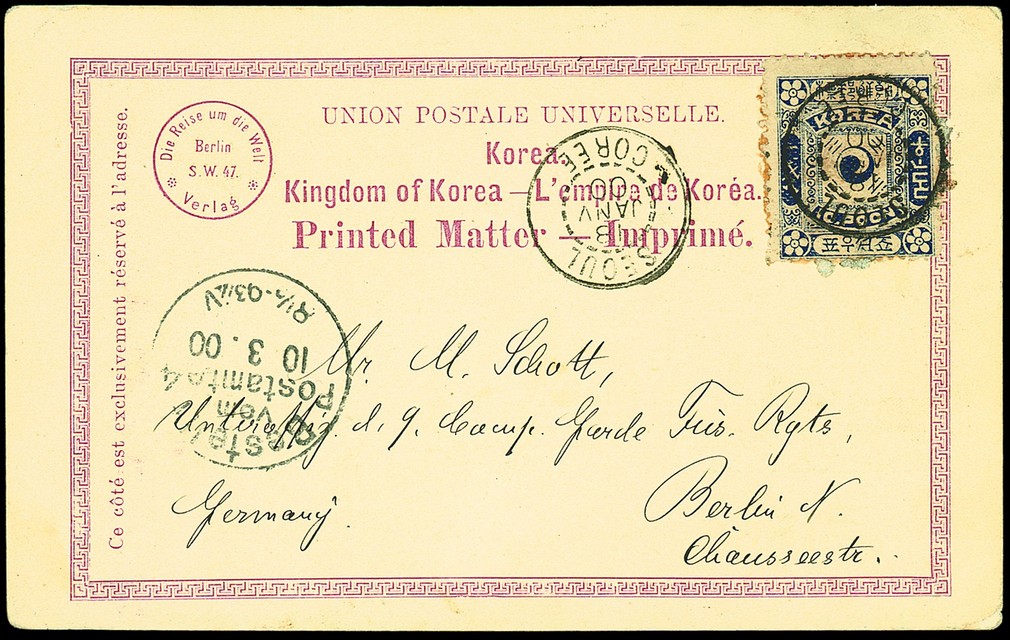 UNION POSTALE UNIVERSELLE.
Korea.
Kingdom of Korea — L'empire de Koréa.
Printed Matter — Imprimé.
Die Reise um die Welt
Berlin
S.W. 47.
Verlag
Ce côté est exclusivement réservé à l'adresse.
SEOUL
18
JANV
00
COREE
KOREA
Bestellt
vom
Postamte 4
10 3. 00
Mr. M. Schott,
Unteroffiz. d. 9. Comp. Garde Füs. Rgts,
Berlin N.
Chausseestr.
Germany.